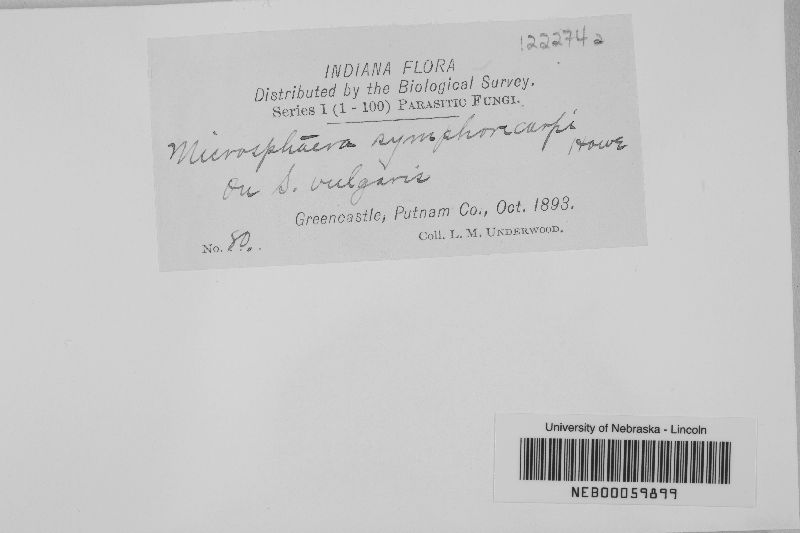 122274a
INDIANA FLORA
Distributed by the Biological Survey.
Series I (1 - 100) PARASITIC FUNGI.
Microsphaera symphoricarpi
Howe
On S. vulgaris
Greencastle, Putnam Co., Oct. 1893.
No. 80.
Coll. L. M. UNDERWOOD.
University of Nebraska - Lincoln
NEB00059899